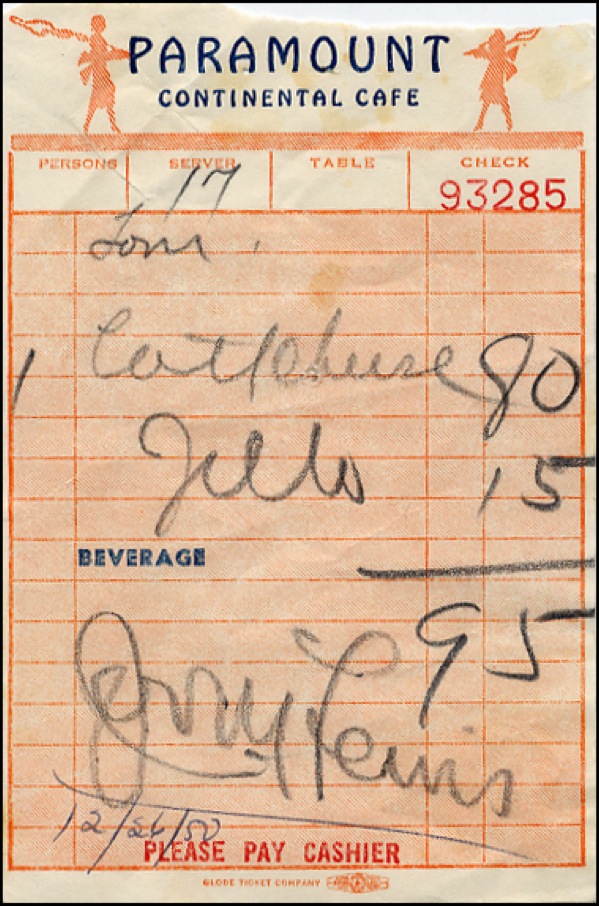 PARAMOUNT
CONTINENTAL CAFE
PERSONS SERVER TABLE CHECK
17 93285
1 80
Jello 15
BEVERAGE
95
Jerry Lewis
12/26/50
PLEASE PAY CASHIER
GLOBE TICKET COMPANY